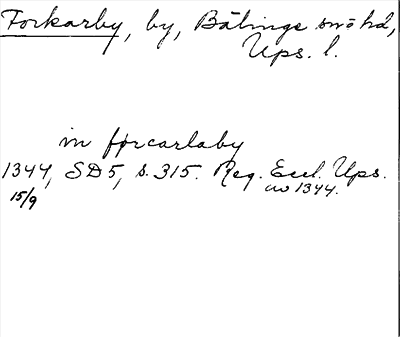 Forkarby, by, Bälinge sn o hd,
Ups. l.
in forcarlaby
1344, SD5, s. 315. Reg. Eccl. Ups.
15/9
av 1344.